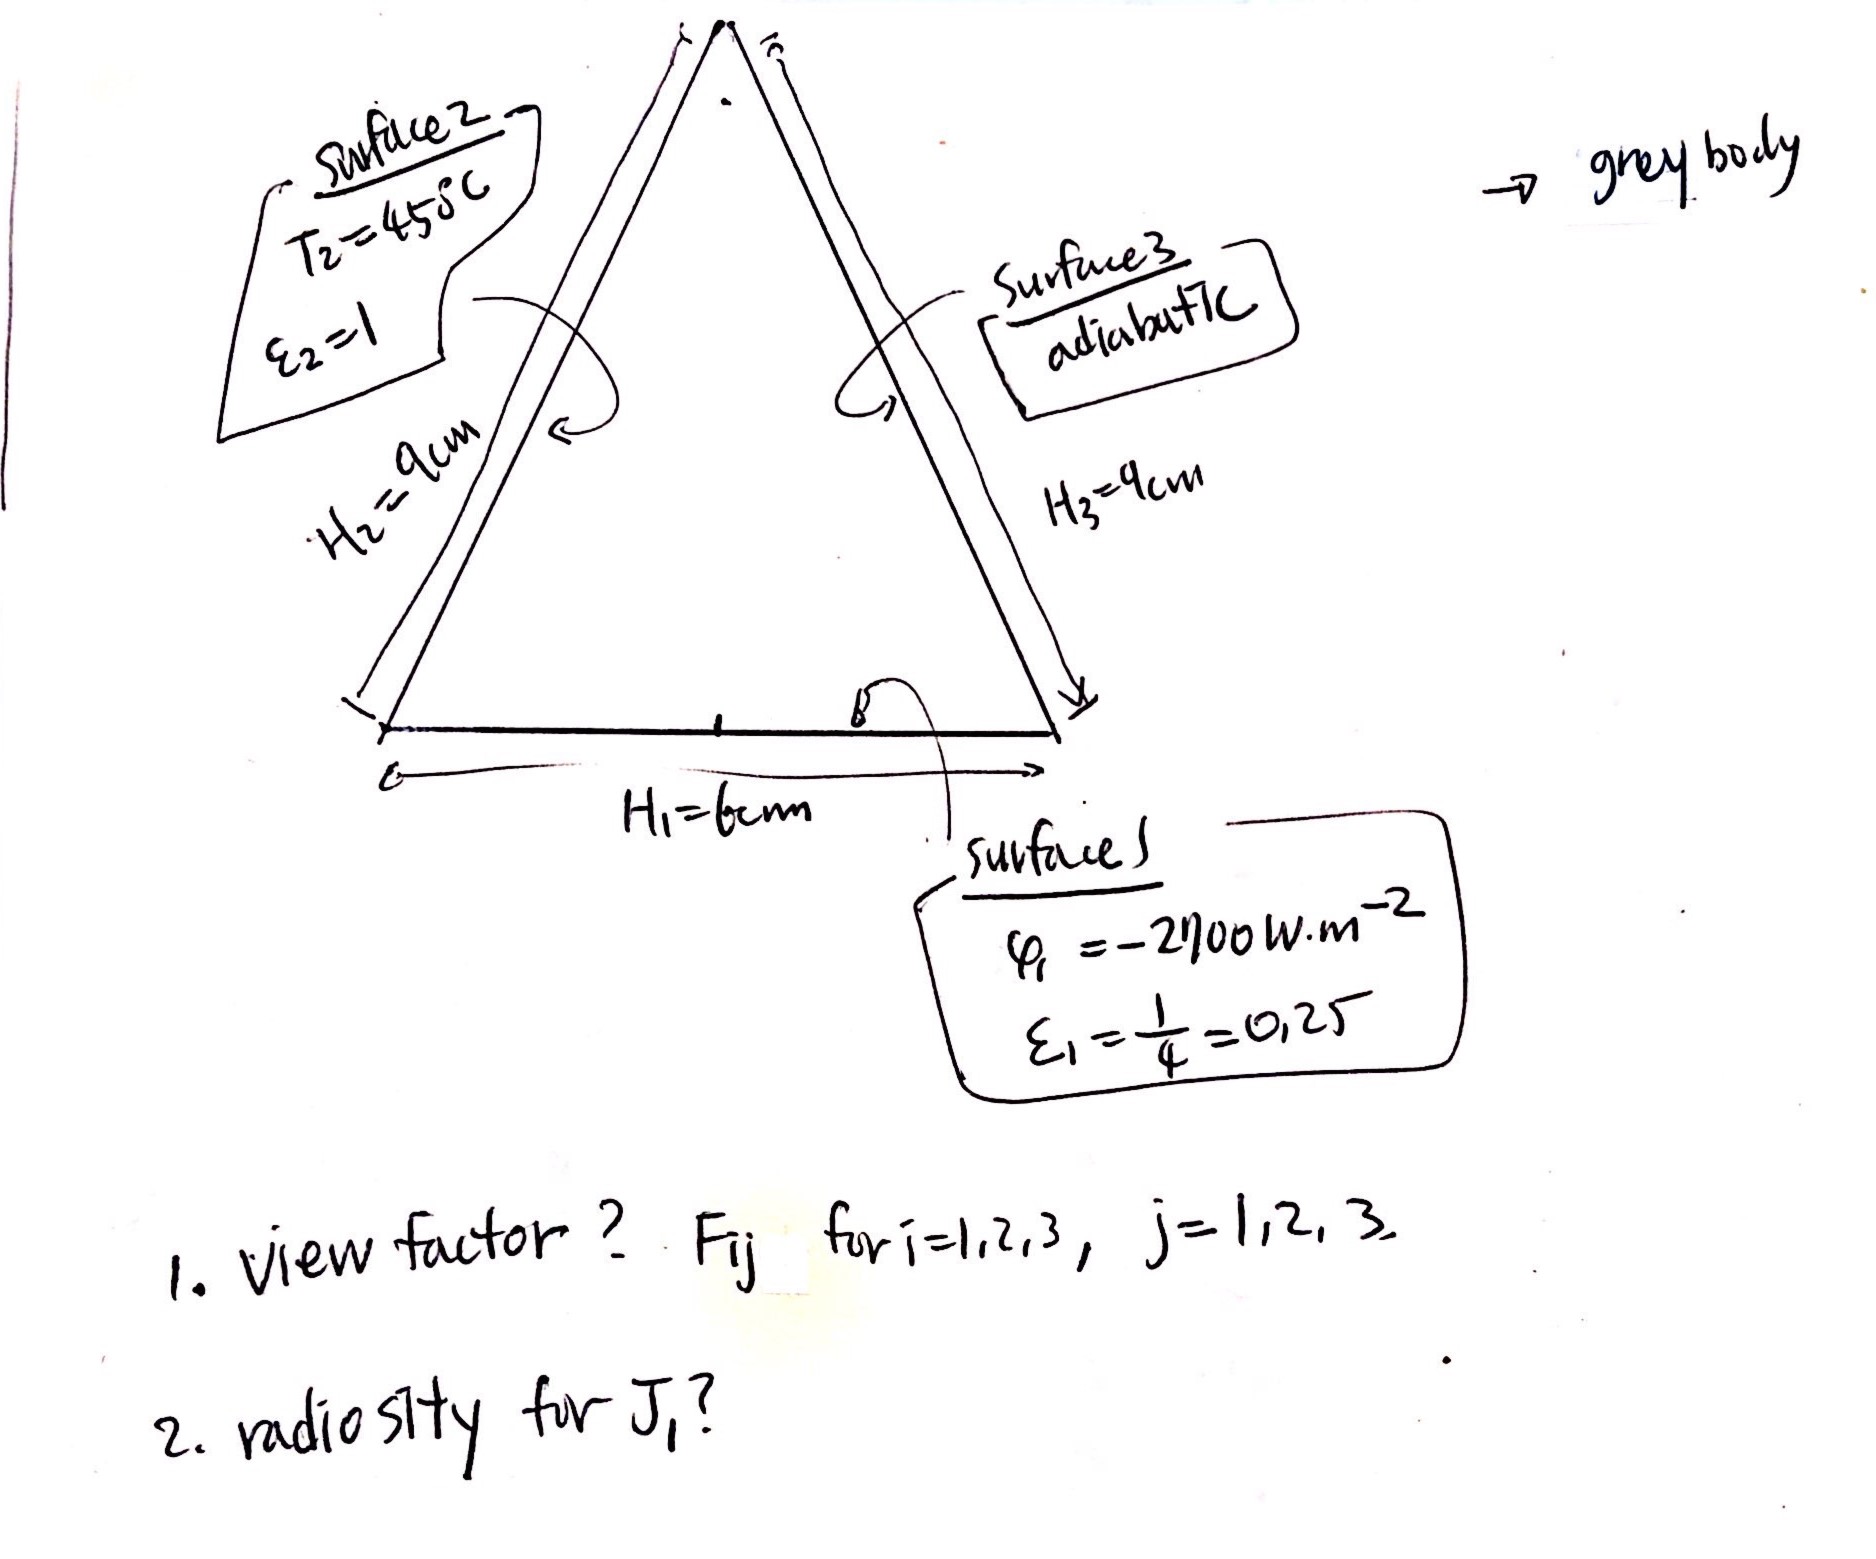 surface2
T₂=450°C
ε₂=1
H₂=9cm
→ grey body
Surface3
adiabatic
H₃=9cm
H₁=6cm
surface1
φ₁ =-2700W.m⁻²
ε₁=1/4=0,25
1. view factor? Fij for i=1,2,3, j=1,2,3.
2. radiosity for J₁?